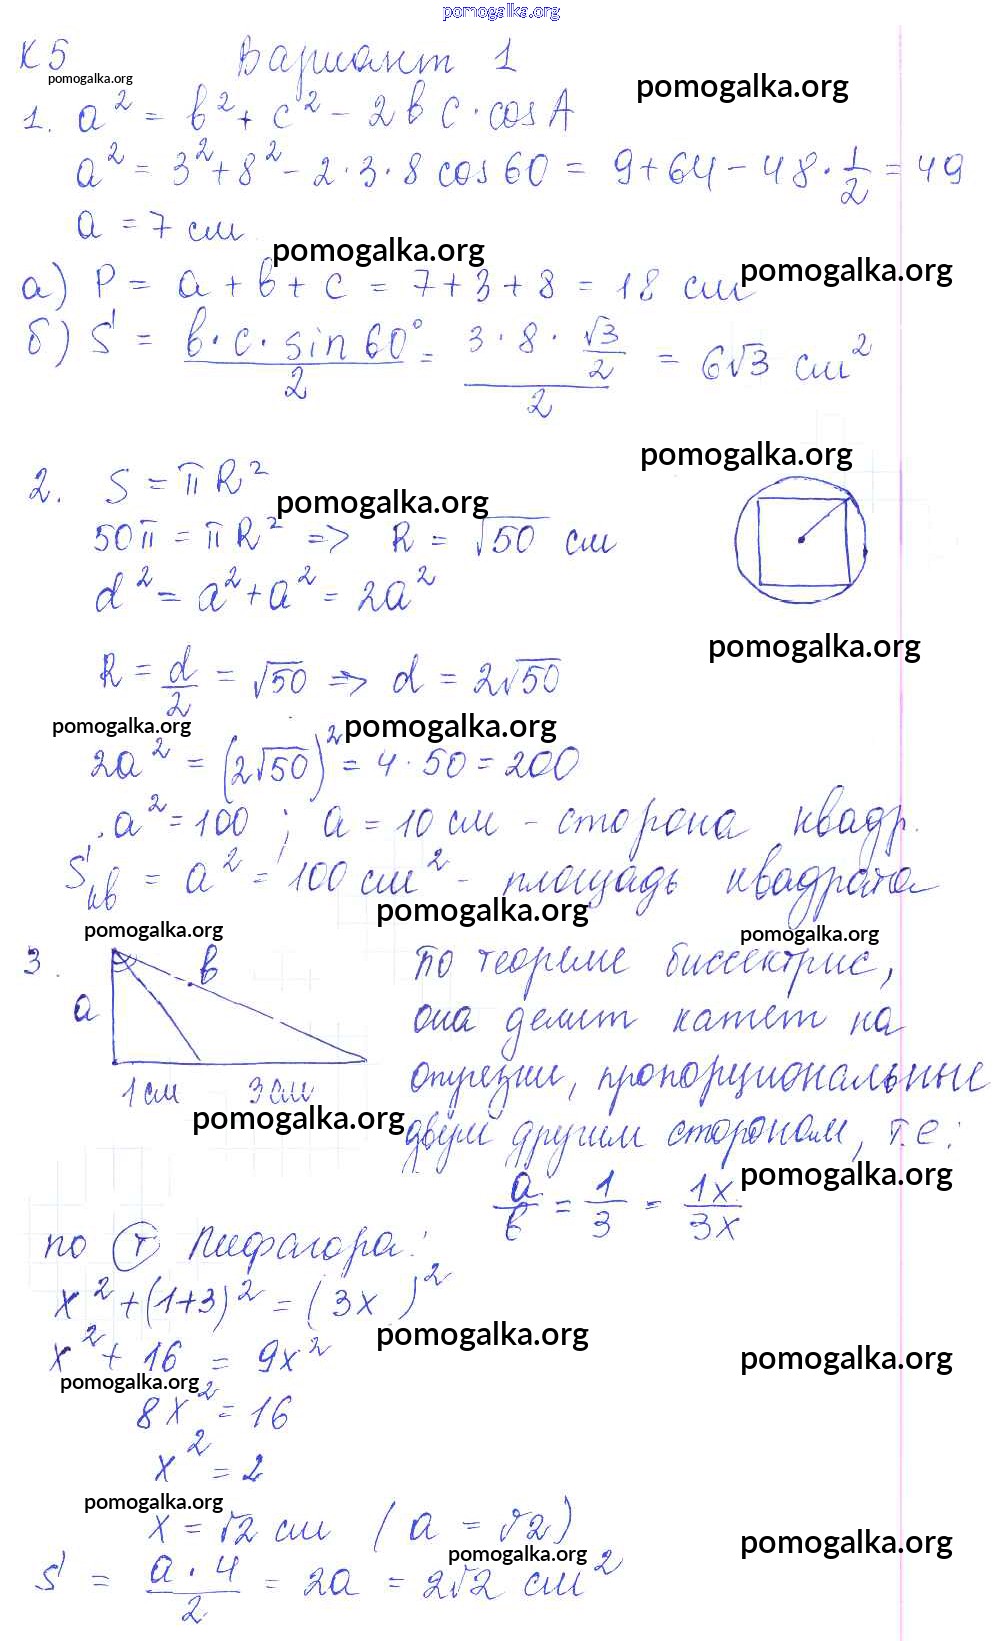 pomogalka.org
К 5 Вариант 1
pomogalka.org pomogalka.org
1. a² = b² + c² - 2bc·cosA
a² = 3² + 8² - 2·3·8 cos60 = 9+64-48·1/2 = 49
a = 7 см
pomogalka.org pomogalka.org
а) P = a + b + c = 7 + 3 + 8 = 18 см
б) S = b·c·sin60°/2 = 3·8·√3/2/2 = 6√3 см²
pomogalka.org
2. S = πR²
pomogalka.org
50π = πR² => R = √50 см
d² = a² + a² = 2a²
pomogalka.org
R = d/2 = √50 => d = 2√50
pomogalka.org pomogalka.org
2a² = (2√50)² = 4·50 = 200
a² = 100 ; a = 10 см - сторона квадр.
Sкв = a² = 100 см² - площадь квадрата
pomogalka.org
pomogalka.org pomogalka.org
3. a b 1 см 3 см
По теореме биссектрис,
она делит катет на
отрезки, пропорциональные
pomogalka.org
двум другим сторонам, т.е:
pomogalka.org
a/b = 1/3 = 1x/3x
по т Пифагора:
x² + (1+3)² = (3x)²
pomogalka.org
x² + 16 = 9x²
pomogalka.org pomogalka.org
8x² = 16
x² = 2
pomogalka.org
x = √2 см (a = √2)
pomogalka.org pomogalka.org
S = a·4/2 = 2a = 2√2 см²